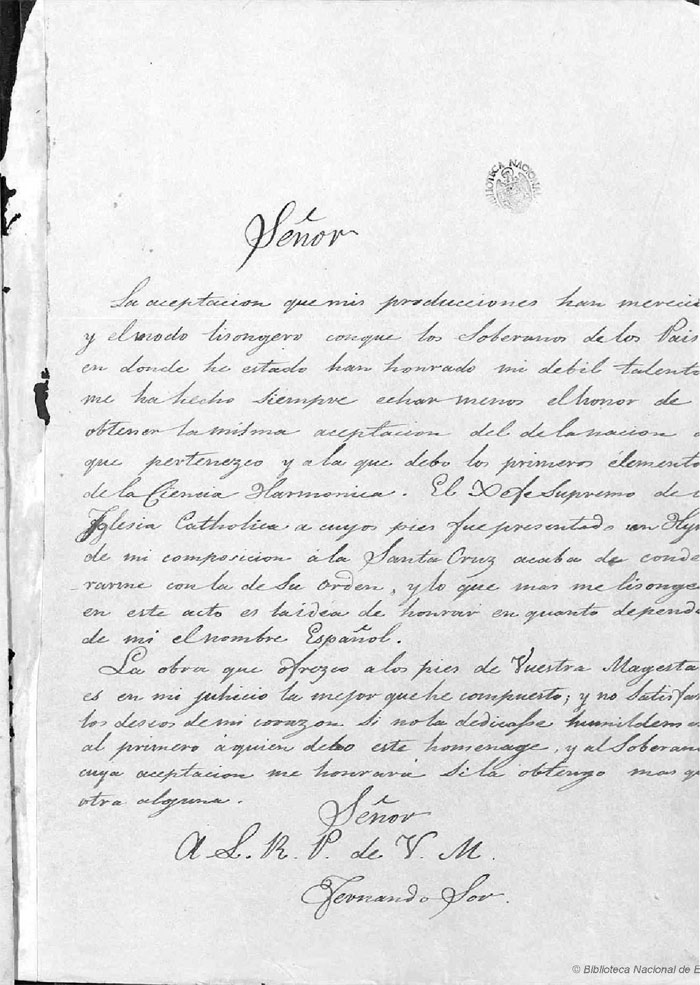 BIBLIOTECA NACIONAL
Señor
La aceptacion que mis producciones han mereci
y el modo lisongero conque los Soberanos de los Pais
en donde he estado han honrado mi debil talento
me ha hecho siempre echar menos el honor de
obtener la misma aceptacion del de la nacion a
que pertenezco y a la que debo los primeros élemento
de la Ciencia Harmonica. El Xefe Supremo de
Iglesia Catholica a cuyos pies fue presentado un Hy
de mi composicion á la Santa Cruz acaba de conde
-rarme con la de su orden, y lo que mas me lisonge
en este acto es la idea de honrar en quanto depend
de mi el nombre Español.
La obra que ofrezco a los pies de Vuestra Magesta
es en mi juhicio la mejor que he compuesto; y no Satisfa
los deseos de mi corazon si no la dedicasse humildem
al primero á quien debo este homenage, y al Soberan
cuya aceptacion me honrará si la obtengo mas q
otra alguna.
Señor
A L. R. P. de V. M.
Fernando Sor.
© Biblioteca Nacional de E